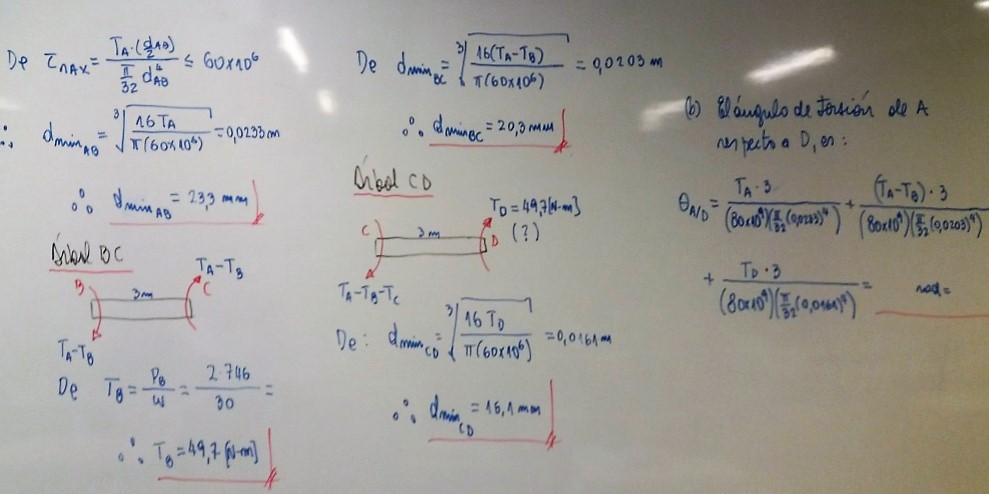 De τmáx = T_A·(d_AB/2) / (π/32 d⁴_AB) ≤ 60×10⁶
∴ dmín_AB = ³√(16T_A / π(60×10⁶)) = 0,0233m
∴ dmín_AB = 23,3 mm
Árbol BC
T_A-T_B
B 3m C
T_A-T_B
De T_B = P_B/ω = 2·746/30 =
∴ T_B = 49,7 [N-m]
De dmín_BC = ³√(16(T_A-T_B) / π(60×10⁶)) = 0,0203 m
∴ dmín_BC = 20,3 mm
Árbol CD
T_D = 49,7[N-m]
C 3m D (?)
T_A-T_B-T_C
De: dmín_CD = ³√(16 T_D / π(60×10⁶)) = 0,0161 m
∴ dmín_CD = 16,1 mm
(b) El ángulo de torsión de A
respecto a D, es:
θ_A/D = T_A·3 / (80×10⁹)(π/32 (0,0203)⁴) + (T_A-T_B)·3 / (80×10⁹)(π/32 (0,0203)⁴)
+ T_D·3 / (80×10⁹)(π/32 (0,0161)⁴) = rad=